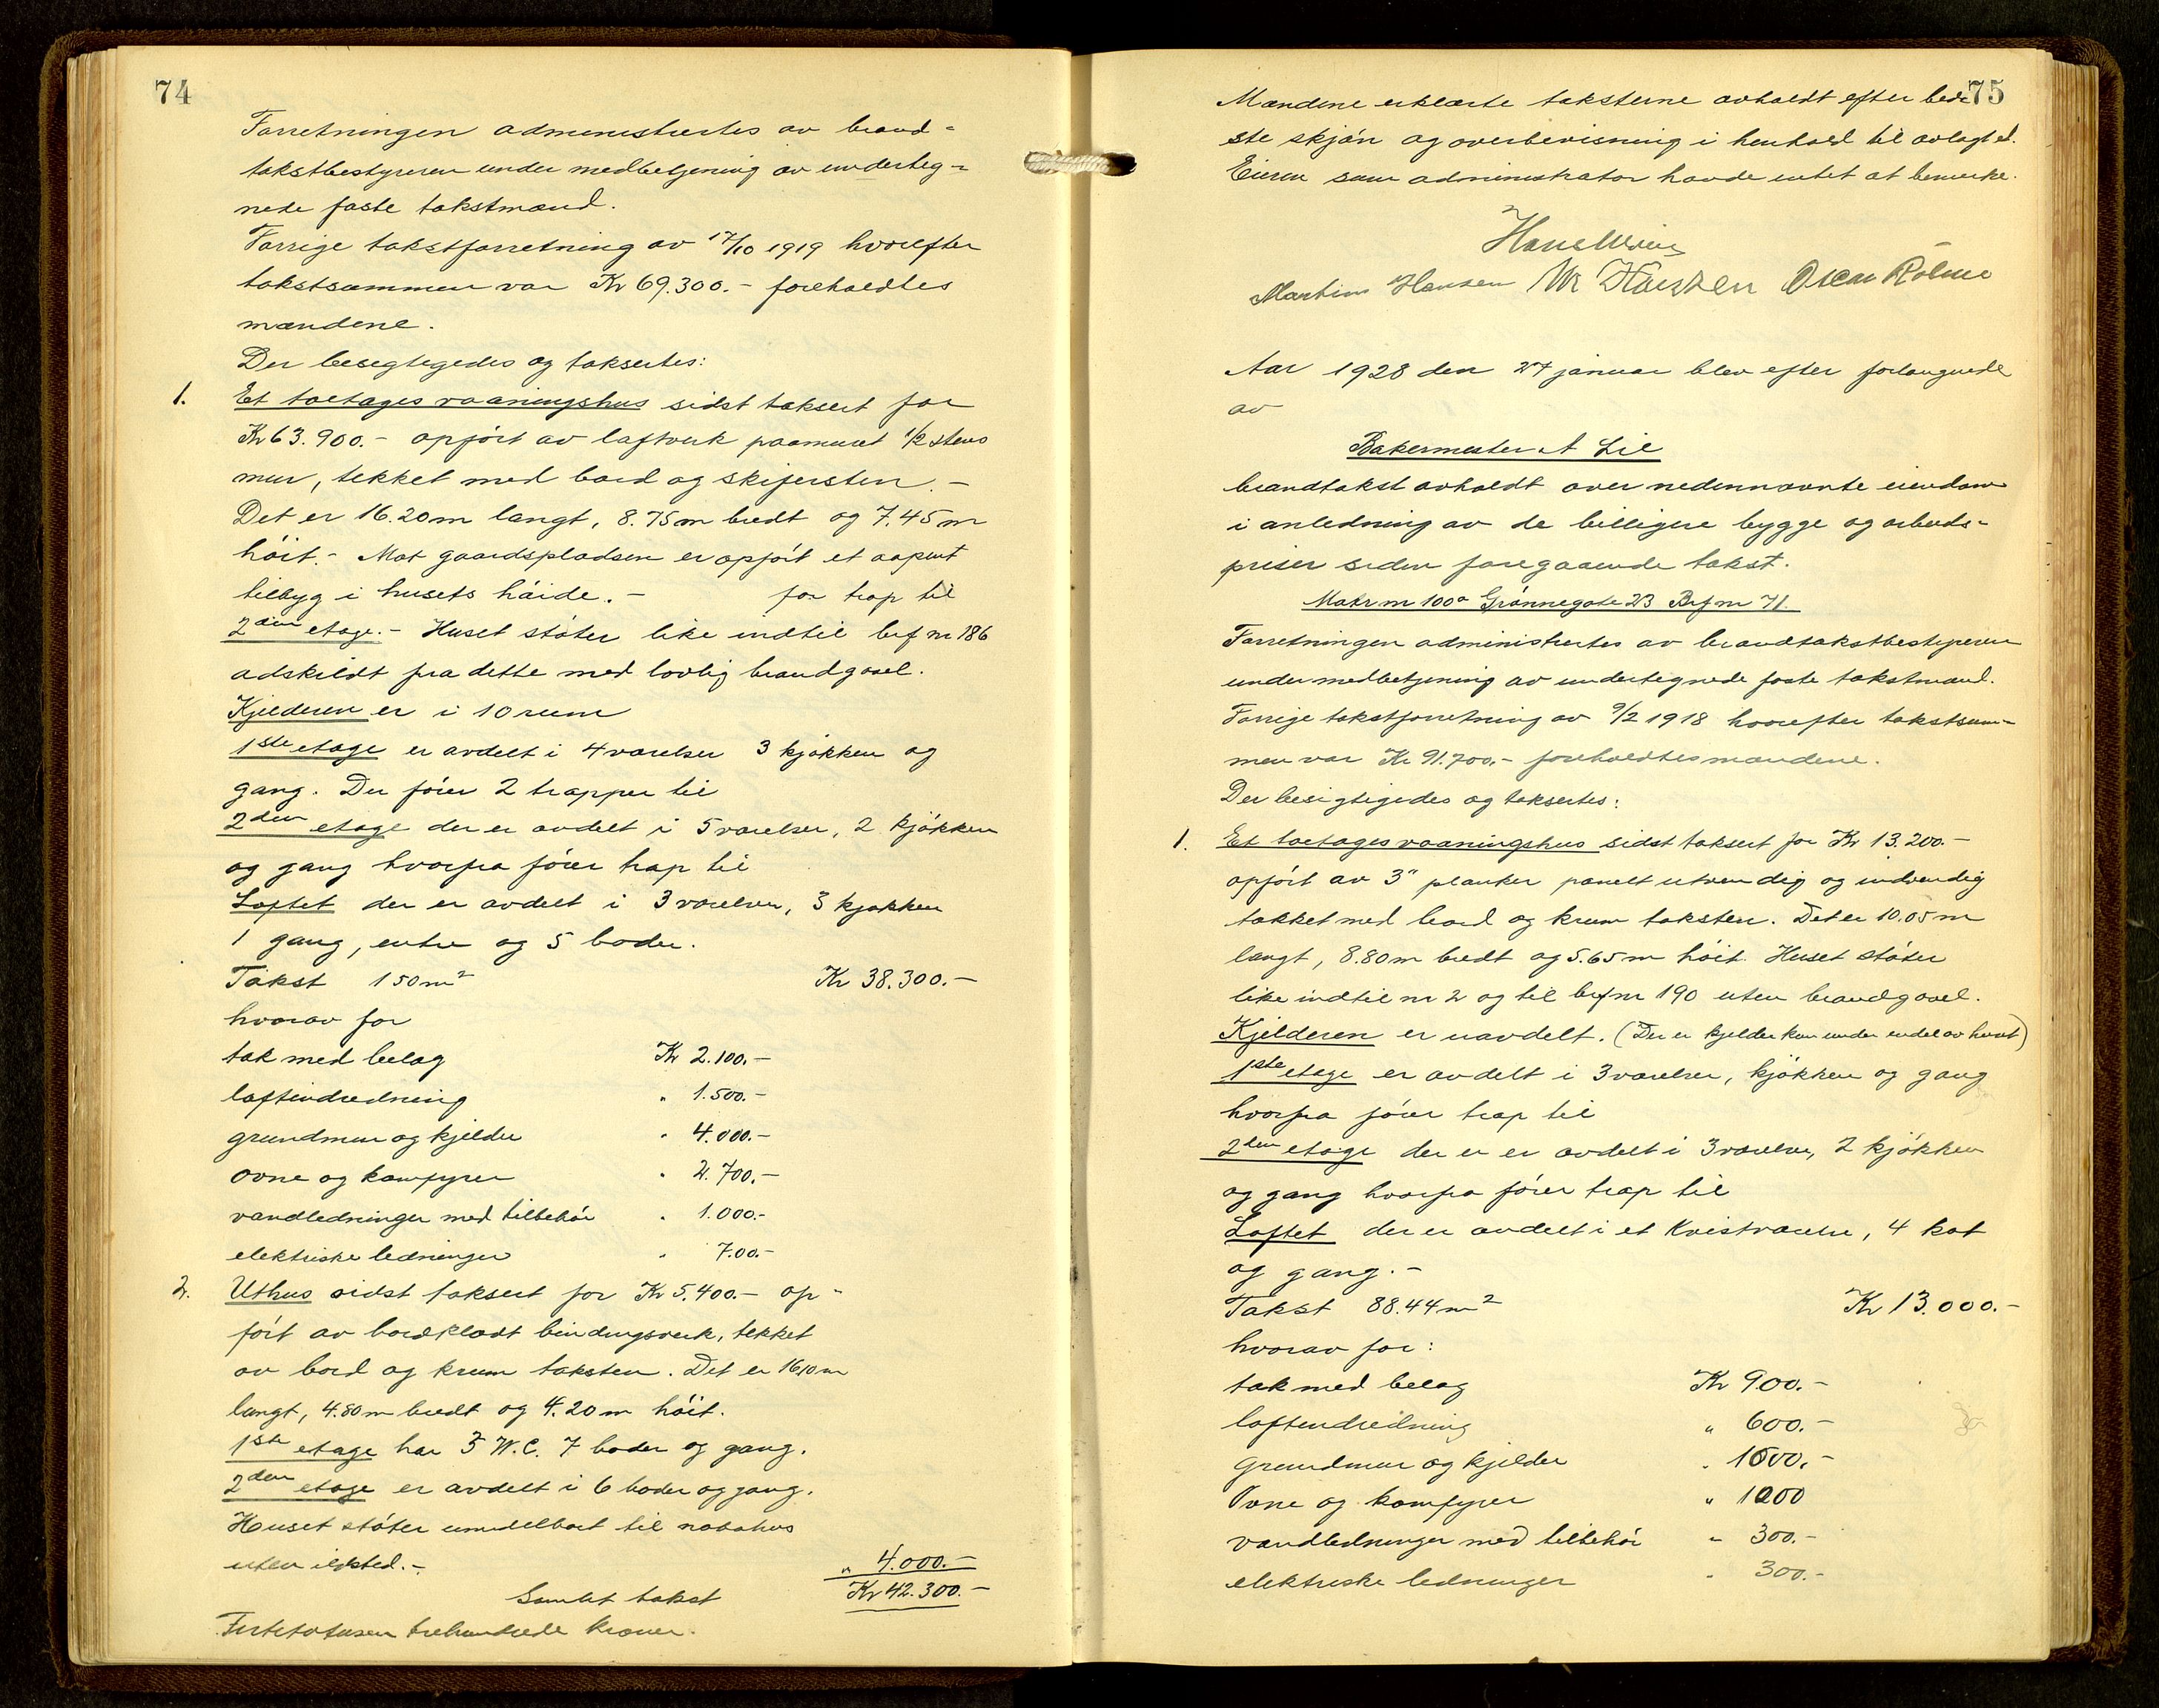 74
Forretningen administrertes av brand-
takstbestyreren under medbetjening av underteg-
nede faste takstmænd.
Forrige takstforretning av 17/10 1919 hvorefter
takstsummen var Kr 69.300.- foreholdtes
mændene.
Der besegtigedes og taksertes:
1. Et toetages vaaningshus sidst taksert for
Kr 63.900.- opført av laftverk paamuret 1/2 stens
mur, tekket med bord og skifersten.-
Det er 16.20m langt, 8.75m bredt og 7.45m
høit.- Mot gaardspladsen er opført et aapent
tilbyg i husets høide.- for trap til
2den etage.- Huset støter like indtil brf nr 186
adskildt fra dette med lovlig brandgavel.
Kjelderen er i 10 rum
1ste etage er avdelt i 4 værelser 3 kjøkken og
gang. Der fører 2 trapper til
2den etage der er avdelt i 5 værelser, 2 kjøkken
og gang hvorfra fører trap til
Loftet der er avdelt i 3 værelser, 3 kjøkken
1 gang, entre og 5 boder.
Takst 150m² Kr 38.300.-
hvorav for
tak med belæg Kr 2.100.-
loftindredning " 1.500.-
grundmur og kjelder " 4.000.-
ovne og komfyrer " 2.700.-
vandledninger med tilbehør " 1.000.-
elektriske ledninger " 700.-
2. Uthus sidst taksert for Kr 5.400.- op-
ført av bordklædt bindingsverk, tekket
av bord og krum taksten. Det er 16.10m
langt, 4.80m bredt og 4.20m høit.
1ste etage har 3 W.C. 7 boder og gang.
2den etage er avdelt i 6 boder og gang.
Huset støter umidelbart til nabohus
uten ildsted.- " 4.000.-
Samlet takst Kr 42.300.-
Firtitotusen trehundrede kroner.
75
Mændene erklærte taksterne avholdt efter bed-
ste skjøn og overbevisning i henhold til avlagt ed.
Eieren som administrator havde intet at bemerke.
Martin Hansen M Hansen Oscar Holme
Aar 1928 den 27 januar blev efter forlangende
av
Bakermester A Lie
brandtakst avholdt over nedennævnte eiendom
i anledning av de billigere bygge og arbeids-
priser siden foregaaende takst.
Matr nr 100a Grønnegate 23 Brf nr 71.
Forretningen administrertes av brandtakstbestyreren
under medbetjening av undertegnede faste takstmænd.
Forrige takstforretning av 9/2 1918 hvorefter takstsum-
men var Kr 91.700.- foreholdtes mændene.
Der besigtigedes og taksertes:
1. Et toetages vaaningshus sidst taksert for Kr 13.200.-
opført av 3" planker panelt utvendig og indvendig
takket med bord og krum taksten. Det er 10.05m
langt, 8.80m bredt og 5.65m høit. Huset støter
like indtil nr 2 og til brf nr 190 uten brandgavel.
Kjelderen er uavdelt. (Der er kjelder kun under endel av huset)
1ste etage er avdelt i 3 værelser, kjøkken og gang
hvorfra fører trap til
2den etage der er er avdelt i 3 værelser, 2 kjøkken
og gang hvorfra fører trap til
Loftet der er avdelt i et kvistværelse, 4 kot
og gang.-
Takst 88.44m² Kr 13.000.-
hvorav for:
tak med belæg Kr 900.-
loftindredning " 600.-
Grundmur og kjelder " 1000.-
Ovne og komfyrer " 1000
vandledninger med tilbehør " 300.-
elektriske ledninger " 300.-